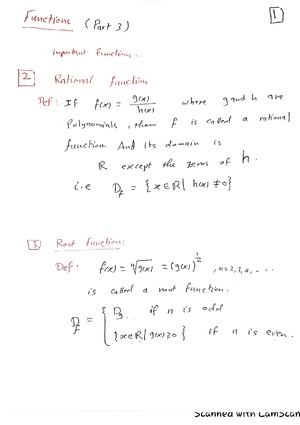 Functions (Part 3)
1
important function..
2 Rational function
Def: If f(x) = g(x)/h(x) where g and h are
Polynomials, then f is called a rational
function And its domain is
R except the zeros of h.
i.e D_f = {x∈R| h(x) ≠ 0}
3 Root Function:
Def: f(x) = ⁿ√g(x) = (g(x))^(1/n) , n=2,3,4,....
is called a root function.
D_f = { D_g.. if n is odd
{x∈R| g(x)≥0} if n is even.
Scanned with CamScan